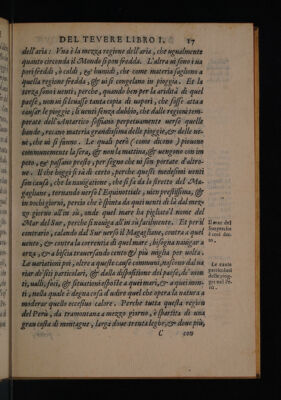 DEL TEVERE LIBRO I. 17
dell'aria: Vna è la mezza regione dell'aria, che vgualmente
quanto circonda il Mondo si può fredda. L'altra ui sono i ua
pori freddi, ò caldi, & humidi, che come materia sagliono a
quella regione fredda, & ui si congelano in pioggia. Et la
terza sono i uenti; perche, quando ben per la aridità di quel
paese, non ui si leuasse tanta copia di uapori, che fusse atta a
causar le pioggie; li uenti senza dubbio, che dalle regioni tem-
porate dell'Antartico soffiano perpetuamente uerso quelle
bande, recano materia grandissima delle pioggie, & delle ne-
ue, che ui si fanno. Le quali però (come dicono) piouono
communemente la sera, & non la mattina; & uengono con im
peto, & passano presto, per segno che ui son portate d'altro-
ue. Il che hoggi si sà di certo, perche questi medesimi uenti
son causa, che la nauigatione, che si fa da lo stretto del Ma-
gagliane, tornando uerso l'Equinottiale, uien prestissima, &
in pochi giorni, perciò che è spinta da quei uenti di là dal mez-
zo giorno all'in sù, onde quel mare ha pigliato'l nome del
Mar del Sur, perche si nauiga all'in sù soauemente. Et per il
contrario, calando dal Sur uersò il Magagliane, contra a quel
uento, & contra la correntia di quel mare, bisogna nauigar a
orza, & a biscia trauersando cento & più miglia per uolta.
Le mutationi poi, oltre a queste cause communi, nascono dal ua
riar de' siti particolari, & dalla dispositione del paese, de' mon
ti, ualli, foci, & situationi esposte a quei mari, & a quei mon-
ti, nella quale è degna cosa d'udire quel che opera la natura a
moderar quello eccessiuo calore. Perche tutta questa region
del Perù, da tramontana a mezzo giorno, è spartita di una
gran costa di montagne, larga doue trenta leghe, & doue più,
C con
Mar del
Sur perche
è così det-
to.
Le cause
particolari
delle piog-
gie nel Pe-
rù.